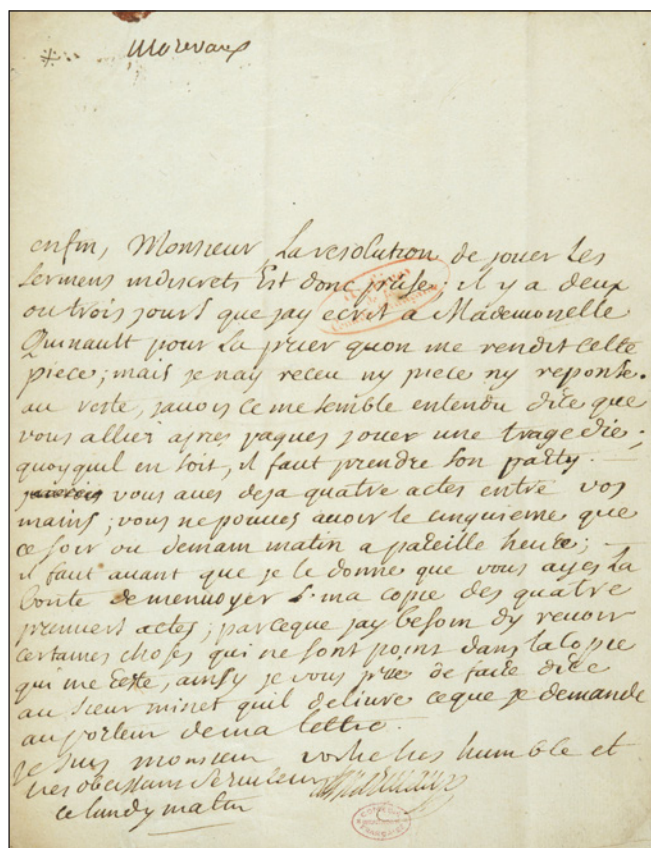 Marivaux
enfin, Monsieur, La resolution de jouer Les
sermens indiscrets Est donc prise; il y a deux
ou trois jours que jay ecrit a Mademoiselle
Quinault pour La prier quon me rendit cette
piece; mais je nay receu ny piece ny reponse.
au reste, javois ce me semble entendu dire que
vous alliez apres paques jouer une tragedie;
quoyquil en soit, il faut prendre son party.
vous aves deja quatre actes entre vos
mains; vous ne pouves avoir le cinquieme que
ce soir ou demain matin a pareille heure;
il faut avant que je le donne que vous ayes La
bonté de menvoyer ma copie des quatre
premiers actes; parceque jay besoin dy revoir
certaines choses qui ne sont point dans la copie
qui me reste, ainsy je vous prie de faire dire
au sieur minet quil delivre ce que je demande
au porteur de ma lettre.
je suis monsieur votre tres humble et
tres obeissant serviteur Marivaux
ce lundy matin
COMÉDIE FRANÇAISE